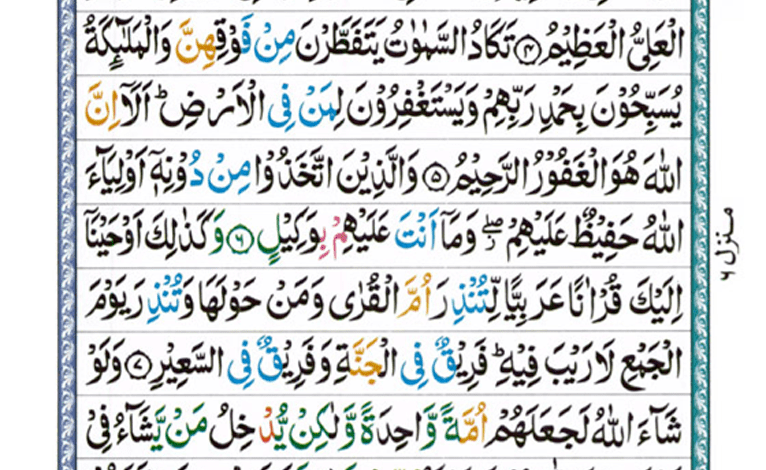 الْعَلِيُّ الْعَظِيْمُ ۝۴ تَكَادُ السَّمٰوٰتُ يَتَفَطَّرْنَ مِنْ فَوْقِهِنَّ وَالْمَلٰٓئِكَةُ
يُسَبِّحُوْنَ بِحَمْدِ رَبِّهِمْ وَيَسْتَغْفِرُوْنَ لِمَنْ فِى الْاَرْضِ ؕ اَلَاۤ اِنَّ
اللّٰهَ هُوَ الْغَفُوْرُ الرَّحِيْمُ ۝۵ وَالَّذِيْنَ اتَّخَذُوْا مِنْ دُوْنِهٖۤ اَوْلِيَآءَ
اللّٰهُ حَفِيْظٌ عَلَيْهِمْ ۖ وَمَاۤ اَنْتَ عَلَيْهِمْ بِوَكِيْلٍ ۝۶ وَكَذٰلِكَ اَوْحَيْنَاۤ
اِلَيْكَ قُرْاٰنًا عَرَبِيًّا لِّتُنْذِرَ اُمَّ الْقُرٰى وَمَنْ حَوْلَهَا وَتُنْذِرَ يَوْمَ
الْجَمْعِ لَا رَيْبَ فِيْهِ ؕ فَرِيْقٌ فِى الْجَنَّةِ وَفَرِيْقٌ فِى السَّعِيْرِ ۝۷ وَلَوْ
شَآءَ اللّٰهُ لَجَعَلَهُمْ اُمَّةً وَّاحِدَةً وَّلٰكِنْ يُّدْخِلُ مَنْ يَّشَآءُ فِىْ
منزل ۶